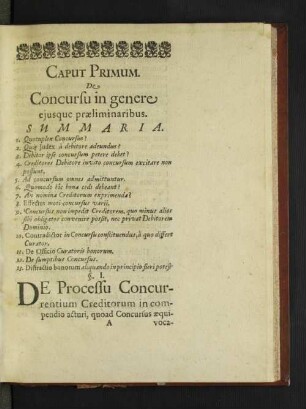 CAPUT PRIMUM.
De
Concursu in genere
ejusque præliminaribus.
SUMMARIA.
1. Quotuplex Concursus?
2. Quis Judex à debitore adeundus?
3. Debitor ipse concursum petere debet?
4. Creditores Debitore invito concursum excitare non
possunt.
5. Ad concursum omnes admittuntur.
6. Quomodo illi bona cedi debeant?
7. An nomina Creditorum exprimenda?
8. Effectus moti concursus varii.
9. Concursus non impedit Creditorem, quo minus alter
sibi obligatos convenire possit, nec privat Debitorem
Dominio.
10. Contradictor in Concursu constituendus, à quo differt
Curator.
11. De Officio Curatoris bonorum.
12. De sumptibus Concursus.
13. Distractio bonorum aliquando in principio fieri potest.
§. I.
DE Processu Concur-
rentium Creditorum in com-
pendio acturi, quoad Concursus æqui-
A voca-